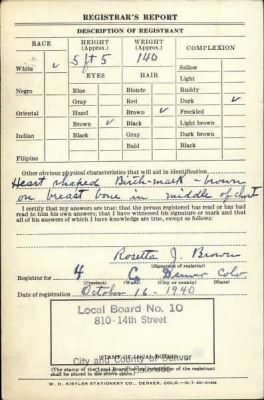 REGISTRAR'S REPORT
DESCRIPTION OF REGISTRANT
RACE HEIGHT (Approx.) WEIGHT (Approx.) COMPLEXION
5 ft 5 140
White ✓ Sallow
EYES HAIR Light
Negro Blue Blonde Ruddy
Gray Red Dark ✓
Oriental Hazel Brown ✓ Freckled
Brown ✓ Black Light brown
Indian Black Gray Dark brown
Bald Black
Filipino
Other obvious physical characteristics that will aid in identification
Heart shaped Birth-mark - brown
on breast bone in middle of chest
I certify that my answers are true; that the person registered has read or has had
read to him his own answers; that I have witnessed his signature or mark and that
all of his answers of which I have knowledge are true, except as follows:
Rosetta J. Brown
(Signature of registrar)
Registrar for 4 C Denver Colo
(Precinct) (Ward) (City or county) (State)
Date of registration October 16 - 1940
Local Board No. 10
810-14th Street
City and County of Denver
Colorado
(STAMP OF LOCAL BOARD)
(The stamp of the Local Board having jurisdiction of the registrant
shall be placed in the above space.)
W. H. KISTLER STATIONERY CO., DENVER, COLO.